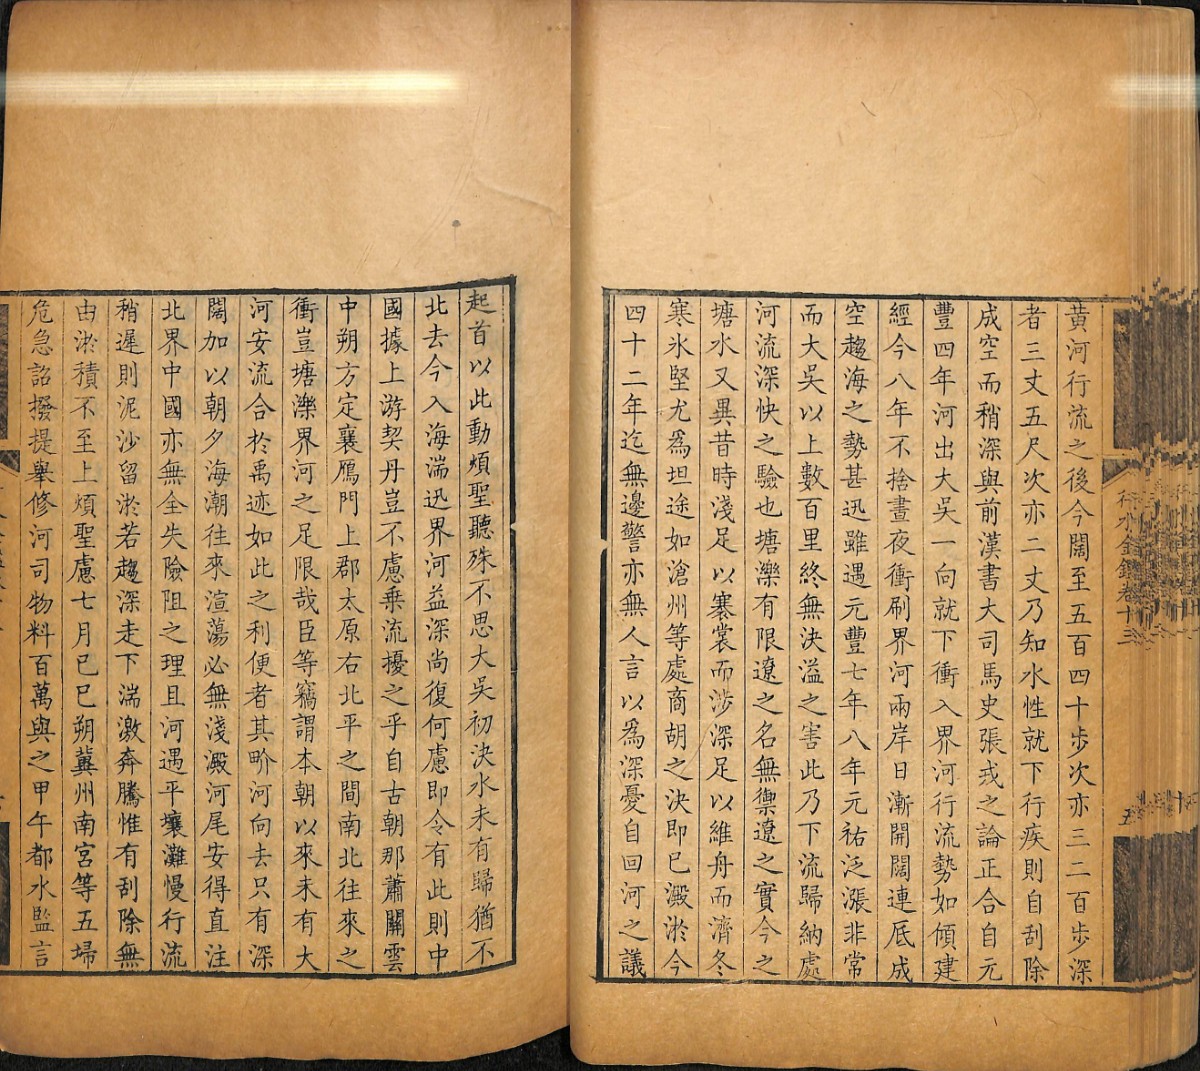 黄河行流之後今闊至五百四十步次亦三二百步深
者三丈五尺次亦二丈乃知水性就下行疾則自刮除
成空而稍深與前漢書大司馬史張戎之論正合自元
豐四年河出大吳一向就下衝入界河行流勢如傾建
經今八年不捨晝夜衝刷界河兩岸日漸開闊連底成
空趨海之勢甚迅雖遇元豐七年八年元祐泛漲非常
而大吳以上數百里終無決溢之害此乃下流歸納處
河流深快之驗也塘濼有限遼之名無禦遼之實今之
塘水又異昔時淺足以褰裳而涉深足以維舟而濟冬
寒氷堅尤爲坦途如滄州等處商胡之決即已澱淤今
四十二年迄無邊警亦無人言以爲深憂自回河之議
起首以此動煩聖聽殊不思大吳初決水未有歸猶不
北去今入海湍迅界河益深尚復何慮即令有此則中
國據上游契丹豈不慮乗流擾之乎自古朝那蕭關雲
中朔方定襄鴈門上郡太原右北平之間南北往來之
衝豈塘濼界河之足限哉臣等竊謂本朝以來未有大
河安流合於禹迹如此之利便者其畍河向去只有深
闊加以朝夕海潮往來渲蕩必無淺澱河尾安得直注
北界中國亦無全失險阻之理且河遇平壤灘慢行流
稍遲則泥沙留淤若趨深走下湍激奔騰惟有刮除無
由淤積不至上煩聖慮七月已巳朔冀州南宮等五埽
危急詔撥提舉修河司物料百萬與之甲午都水監言
行水金鑑卷十三
五